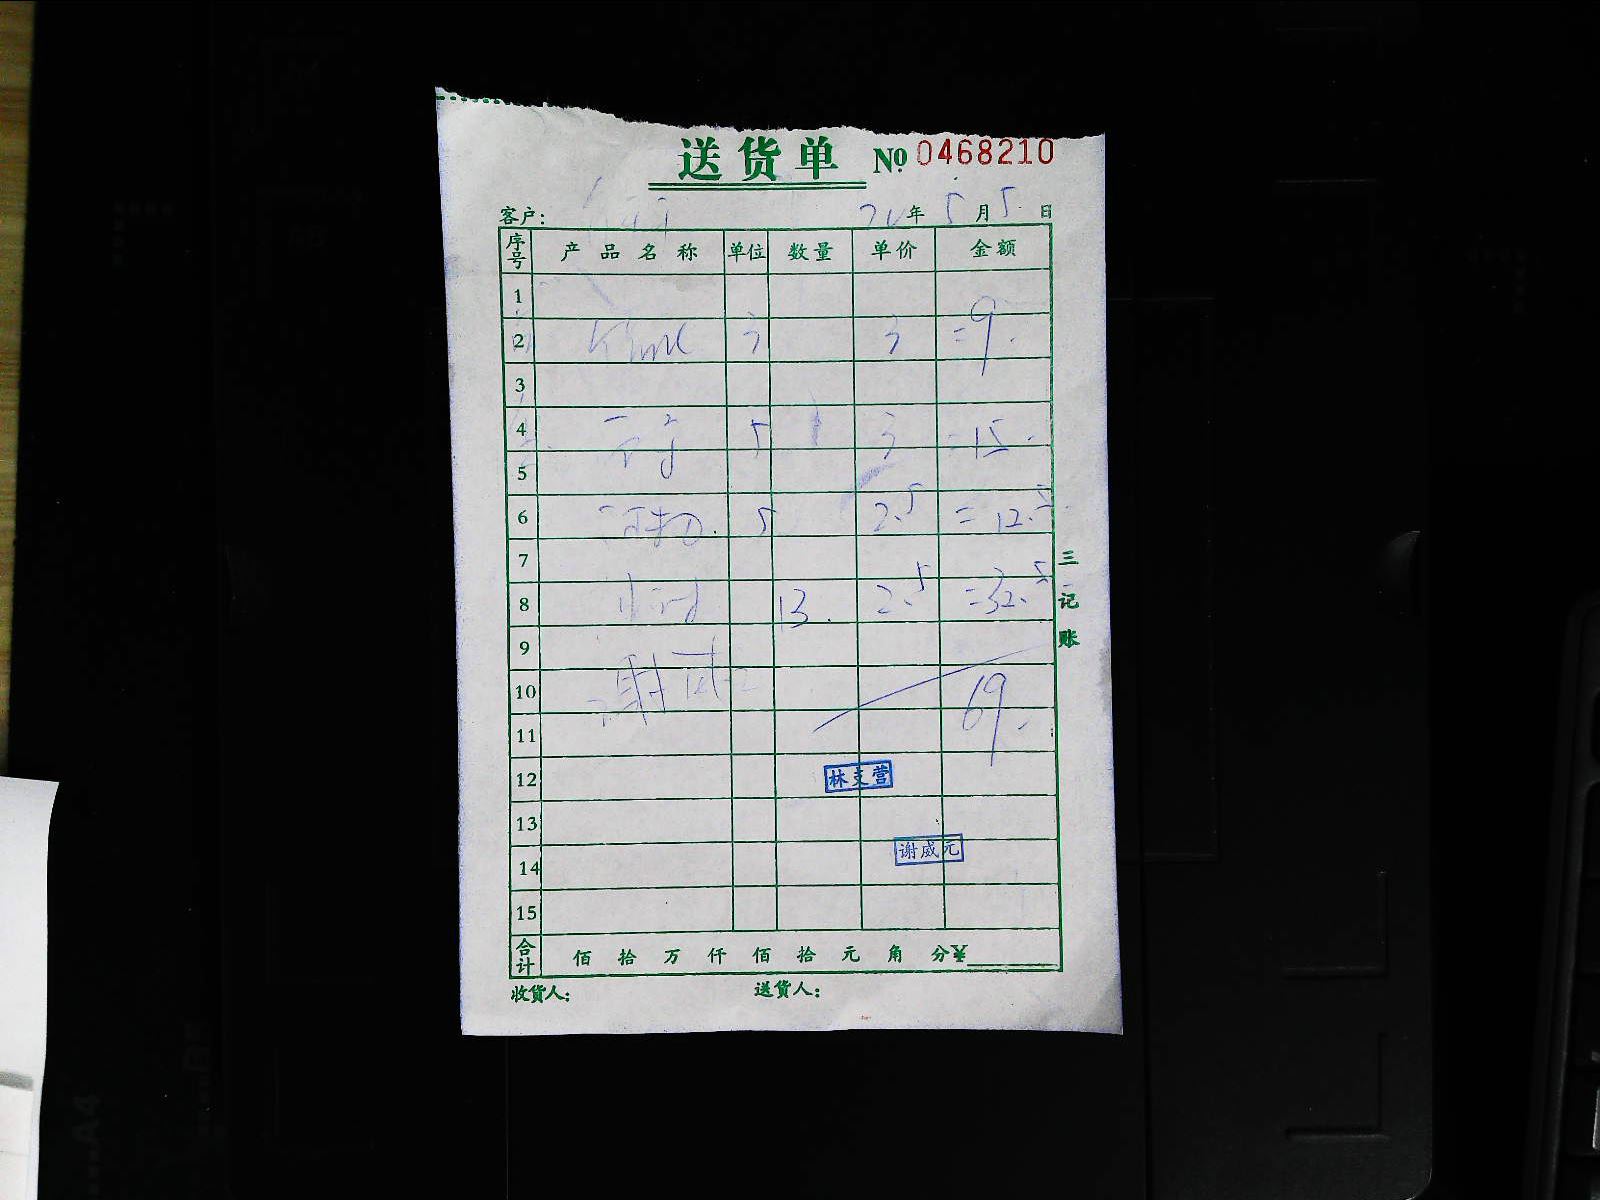 送货单 № 0468210
客户： 年 5 月 5 日
序号 产品名称 单位 数量 单价 金额
1
2 3 3 =9.
3
4 5 3 =15.
5
6 5 2.5 =12.5
7
8 13. 2.5 =32.5
9
10 谢威 69.
11
12 林支营
13
14 谢威元
15
合计 佰 拾 万 仟 佰 拾 元 角 分 ¥
收货人： 送货人：
三记账